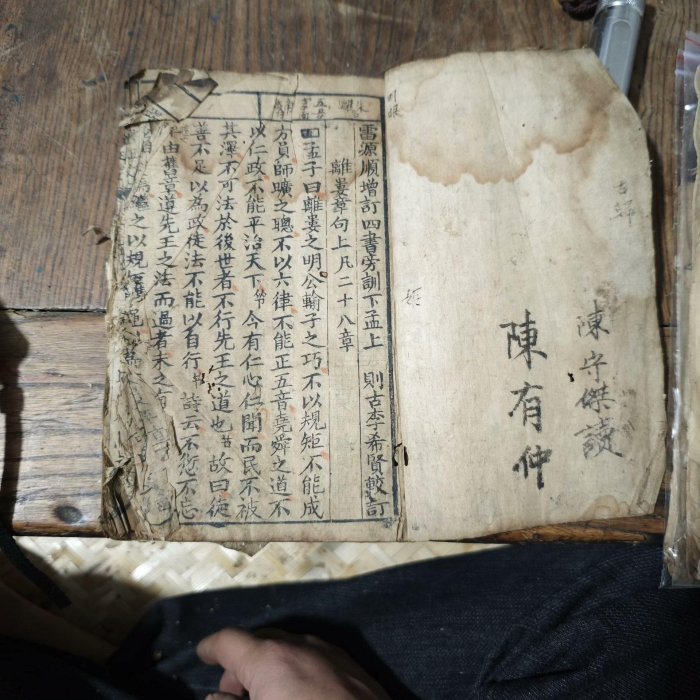 陳守傑讀
陳有仲
雷源順增訂四書旁訓下孟上 則古李希賢較訂
離婁章句上凡二十八章
孟子曰離婁之明公輸子之巧不以規矩不能成
方員師曠之聰不以六律不能正五音堯舜之道不
以仁政不能平治天下節今有仁心仁聞而民不被
其澤不可法於後世者不行先王之道也故曰徒
善不足以為政徒法不能以自行詩云不愆不忘
由舊章遵先王之法而過者未之有
之以規